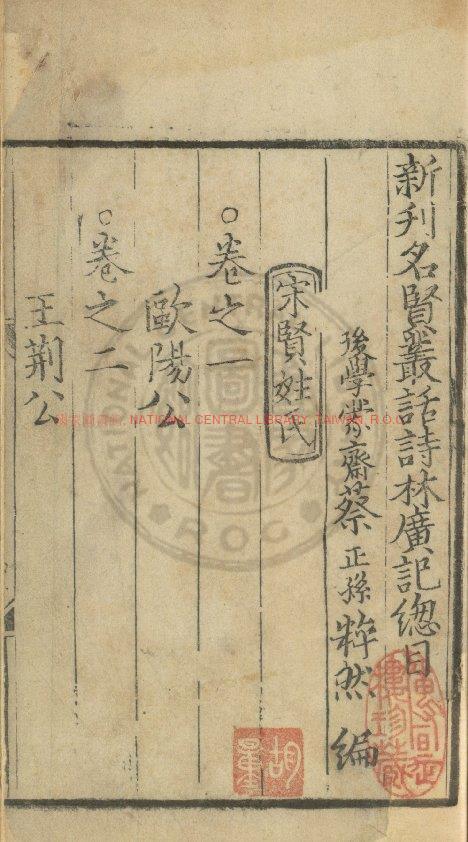 新刋名賢叢話詩林廣記緫目
後學䝉齋蔡正孫粹然編
宋賢姓氏
○卷之一
歐陽公
○卷之二
王荆公
NATIONAL CENTRAL LIBRARY, TAIWAN, R.O.C.